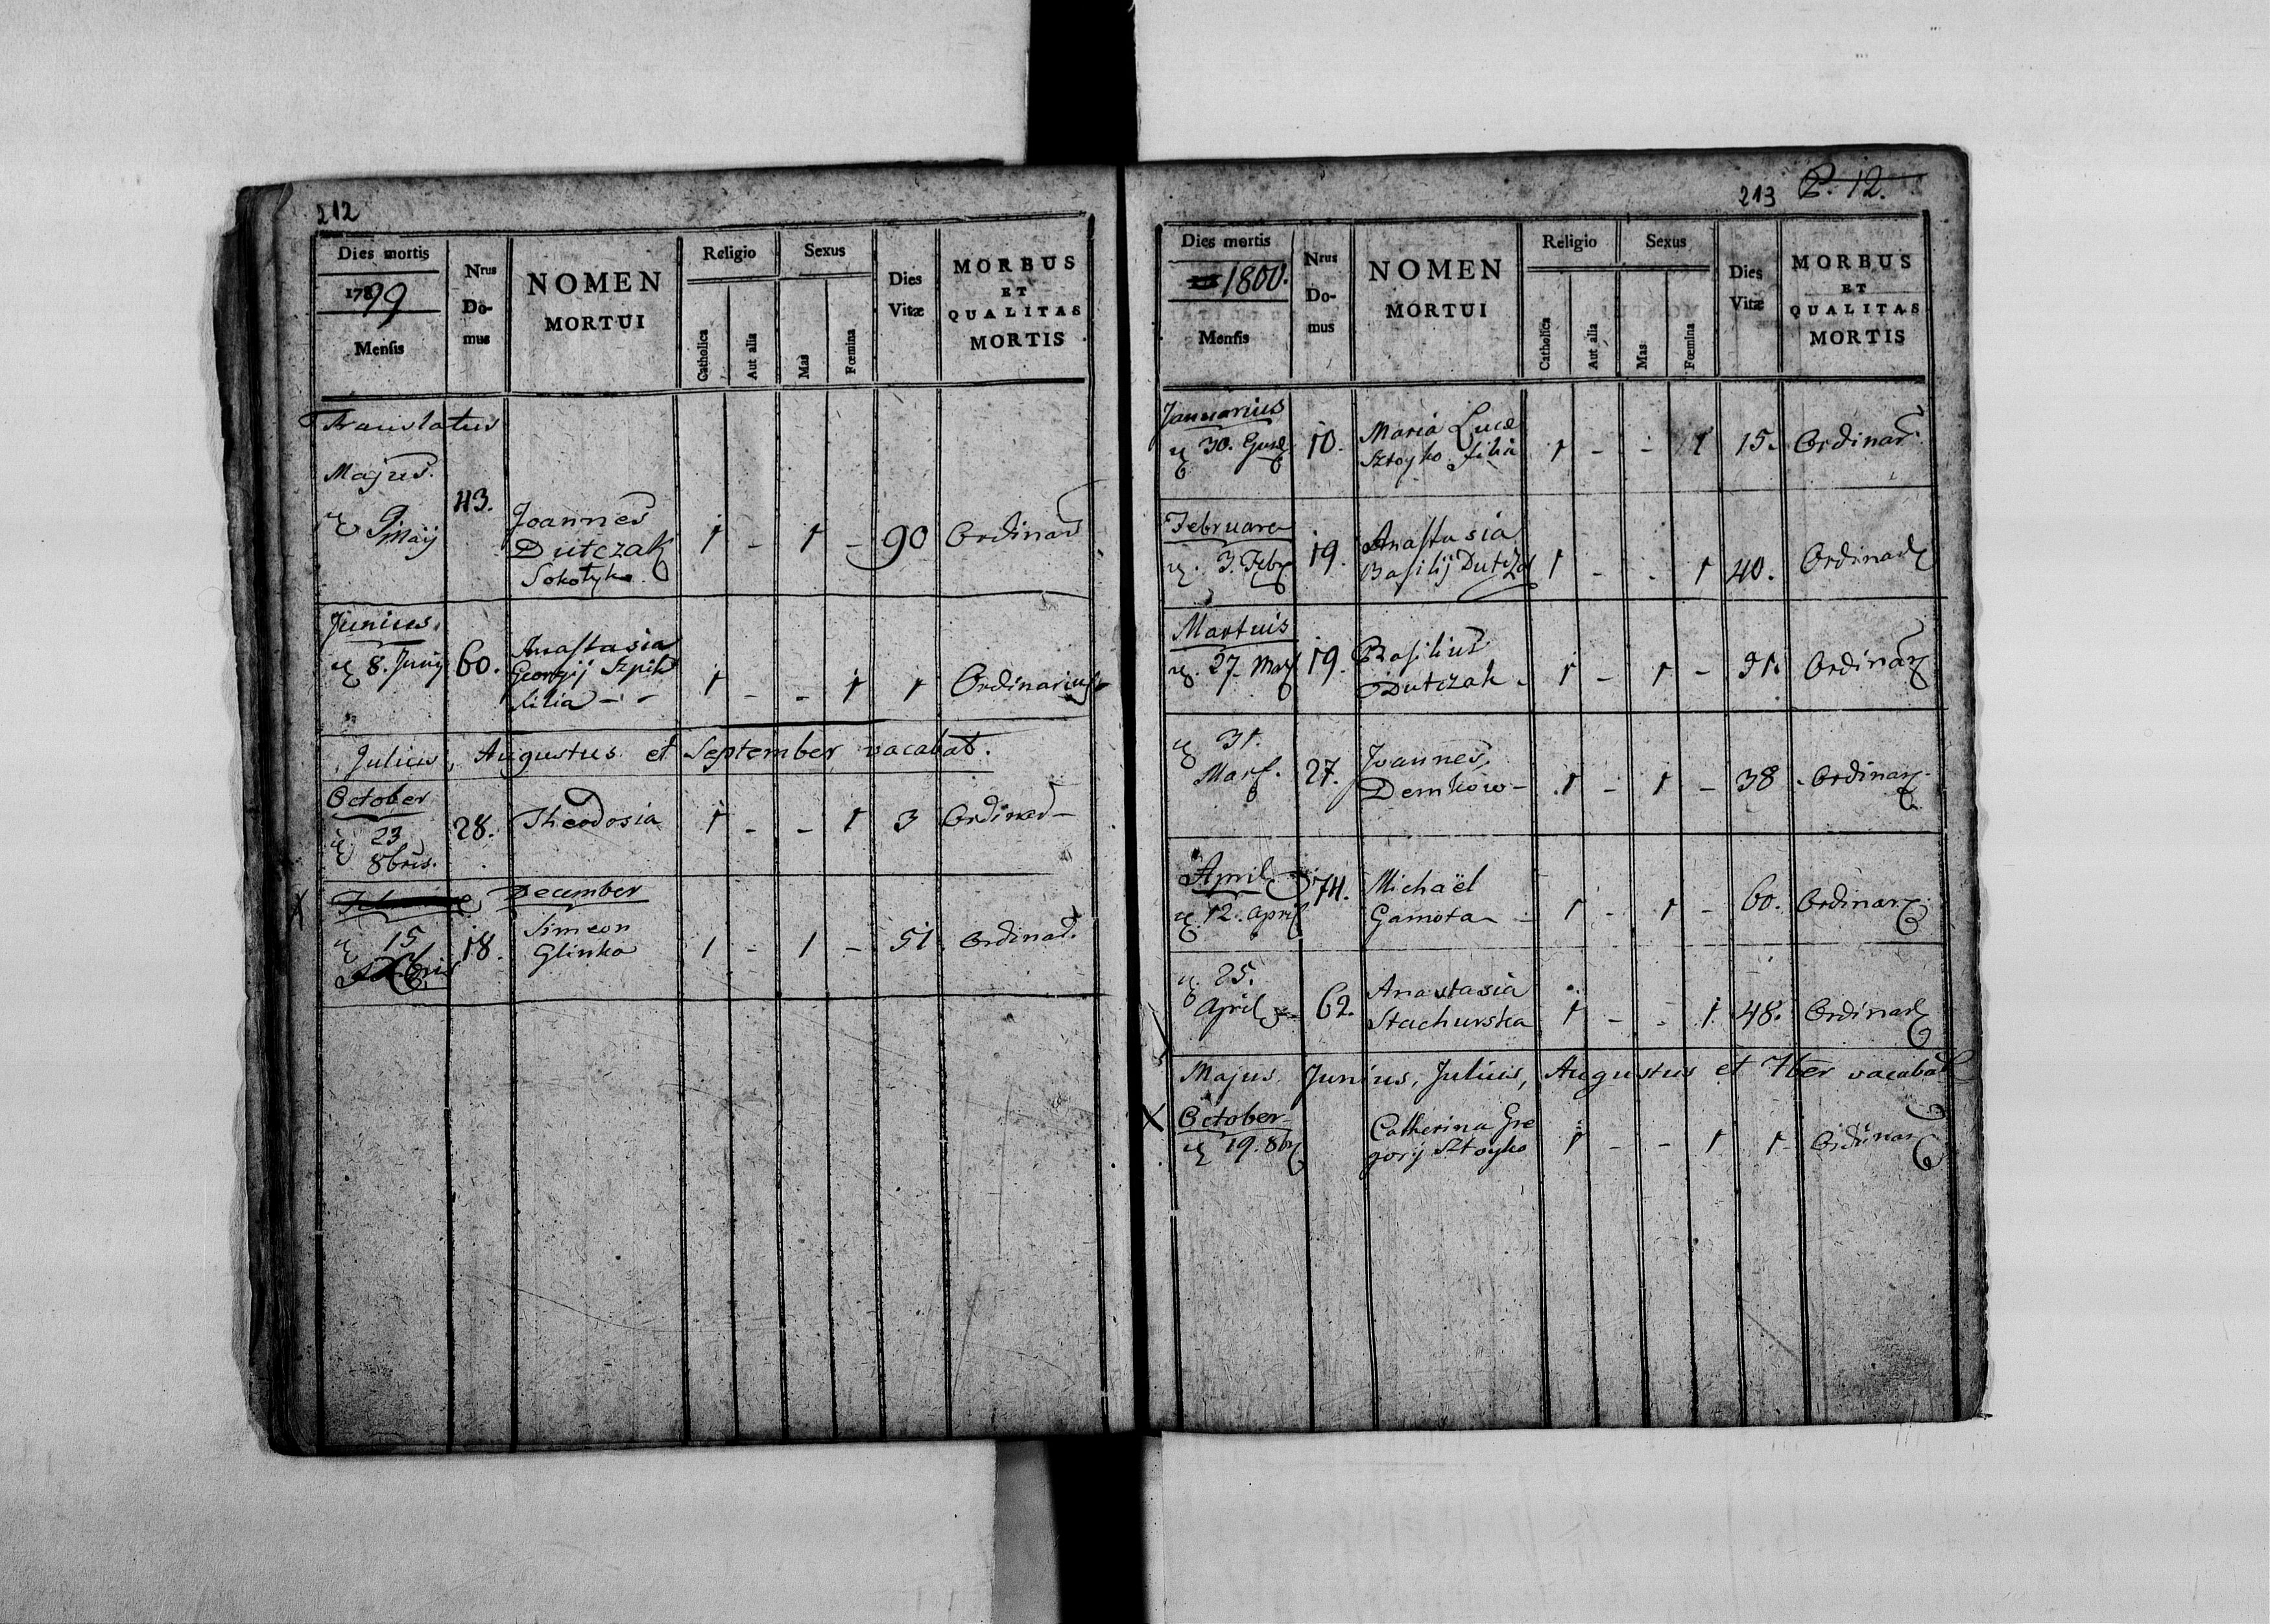 212
Dies mortis
1799
Mensis
Nrus
Do-
mus
NOMEN
MORTUI
Religio
Catholica
Aut alia
Sexus
Mas
Fœmina
Dies
Vitæ
MORBUS
ET
QUALITAS
MORTIS
Translatus
Majus.
9 Maij
43.
Joannes
Dutczak
Sokolyk
1 - 1 - 90 Ordinar
Junius.
8. Junij 60.
Anastasia
Georgij Szpik
filia - -
1 - - 1 1 Ordinarius
Julius, Augustus et September vacabat.
October
23
8bris.
28. Theodosia 1 - - 1 3 Ordinar-
December
15
Xbris
18.
Simeon
Glinka
1 - 1 - 51 Ordinar.
213 P. 12.
Dies mortis
1800.
Mensis
Nrus
Do-
mus
NOMEN
MORTUI
Religio
Catholica
Aut alia
Sexus
Mas
Fœmina
Dies
Vitæ
MORBUS
ET
QUALITAS
MORTIS
Januarius
30. 10.
Maria Lucæ
Sztoyko filia
1 - - 1 15. Ordinar.
Februare
3. Febr 19.
Anastasia
Basilij Dutcza
1 - - 1 40. Ordinar
Martuis
27. Mar 19.
Basilius
Dutczak.
1 - 1 - 91. Ordinar
31.
Mar. 27.
Joannes
Demkow -
1 - 1 - 38 Ordinar
April
12. April 74.
Michaël
Gamota -
1 - 1 - 60. Ordinar
25.
April 62.
Anastasia
Stachurska
1 - - 1 48. Ordinar
Majus, Junius, Julius, Augustus et 7ber vacabat
X October
19. 8br
Catherina Gre
gorij Sztoyko
1 - - 1 1 - Ordinar